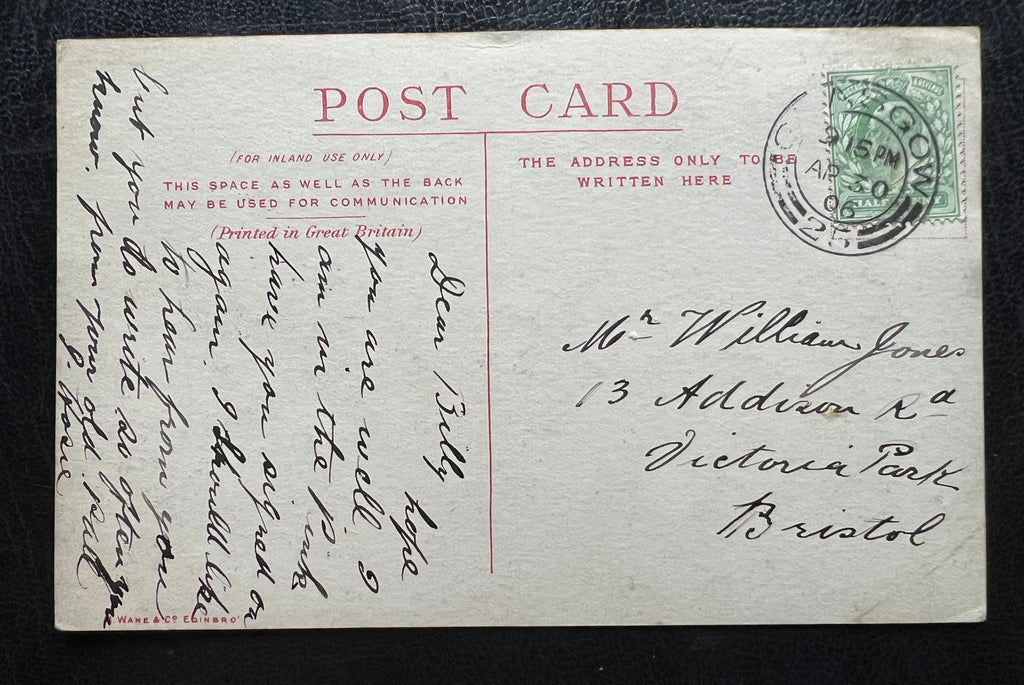 POST CARD
(FOR INLAND USE ONLY)
THIS SPACE AS WELL AS THE BACK
MAY BE USED FOR COMMUNICATION
(Printed in Great Britain)
THE ADDRESS ONLY TO BE
WRITTEN HERE
GLASGOW
9 15 PM
AP 30
06
25
HALF
Dear Billy
hope
you are well I
am in the Pink
have you signed on
again. I should like
to hear from you
but you do write so often you
know. from your old pall
J. Rosie
Mr William Jones
13 Addison Rd
Victoria Park
Bristol
WANE & Co EDINBRO'